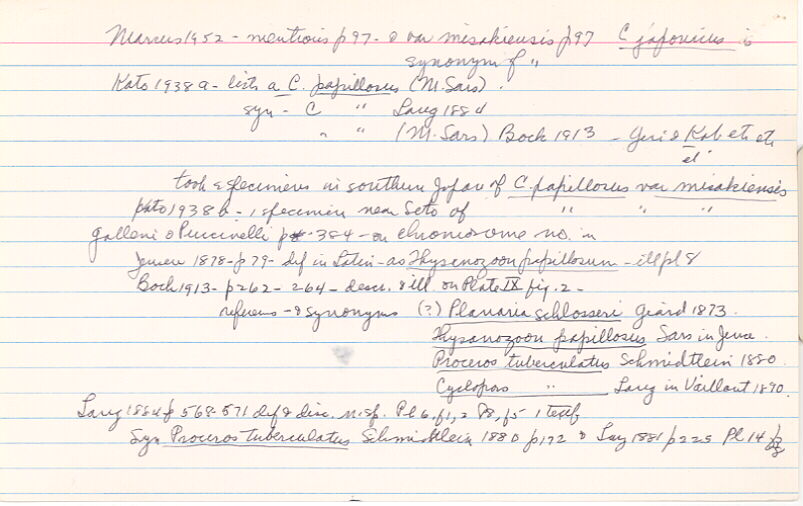 Marcus 1952 - mentions p97 - & var misakiensis p97 C japonicus is
synonym of "
Kato 1938a - lists a C. papillosus (M. Sars).
syn - C " Lang 1884
" " (M. Sars) Bock 1913 - Yeri & Kab etc etc
el
took specimens in southern Japan of C. papillosus var misakiensis
Kato 1938b - 1 specimen near Seto of " " "
Galleni & Puccinelli p 384 - on chromosome no. in
Jensen 1878 - p79 - dif in Latin - as Thysanozoon papillosum - ill pl 8
Bock 1913 - p262 - 264 - descr. & ill. on Plate IX fig. 2 -
referens - & synonyms (?) Planaria schlosseri Giard 1873.
Thysanozoon papillosus Sars in Jense.
Proceros tuberculatus Schmidtlein 1880.
Cycloporus " Lang in Vaillant 1890.
Lang 1884 p 568-571 dif & disc. n. sp. Pl 6, f1, 2 P8, f5 1 textf
Syn Proceros tuberculatus Schmidtlein 1880 p172 & Lang 1881 p225 Pl 14